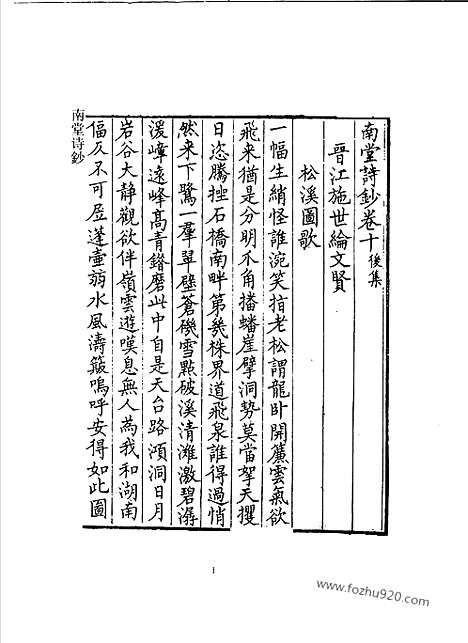 南堂詩鈔卷十後集
晋江施世綸文賢
松溪圖歌
一幅生綃怪誰涴笑指老松謂龍卧開簾雲氣欲
飛来猶是分明爪角播蟠崖擘洞勢莫當拏天攫
日恣騰挫石橋南畔第幾株界道飛泉誰得過悄
然来下鷺一羣翠壁蒼磯雪點破溪清灘激碧潺
湲峰遠峰高青鐕磨此中自是天台路澒洞日月
岩谷大静觀欲伴嶺雲遊嘆息無人為我和湖南
偪仄不可居蓬壷弱水風濤簸嗚呼安得如此圖
南堂诗鈔
1
www.fozhu920.com